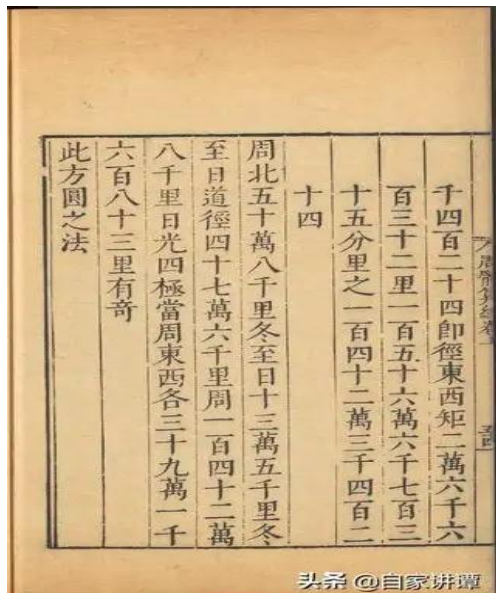 千四百二十四卽徑東西矩二萬六千六
百三十二里一百五十六萬六千七百三
十五分里之一百四十二萬三千四百二
十四
周北五十萬八千里冬至日十三萬五千里冬
至日道徑四十七萬六千里周一百四十二萬
八千里日光四極當周東西各三十九萬一千
六百八十三里有奇
此方圓之法
頭条 @自家讲谭